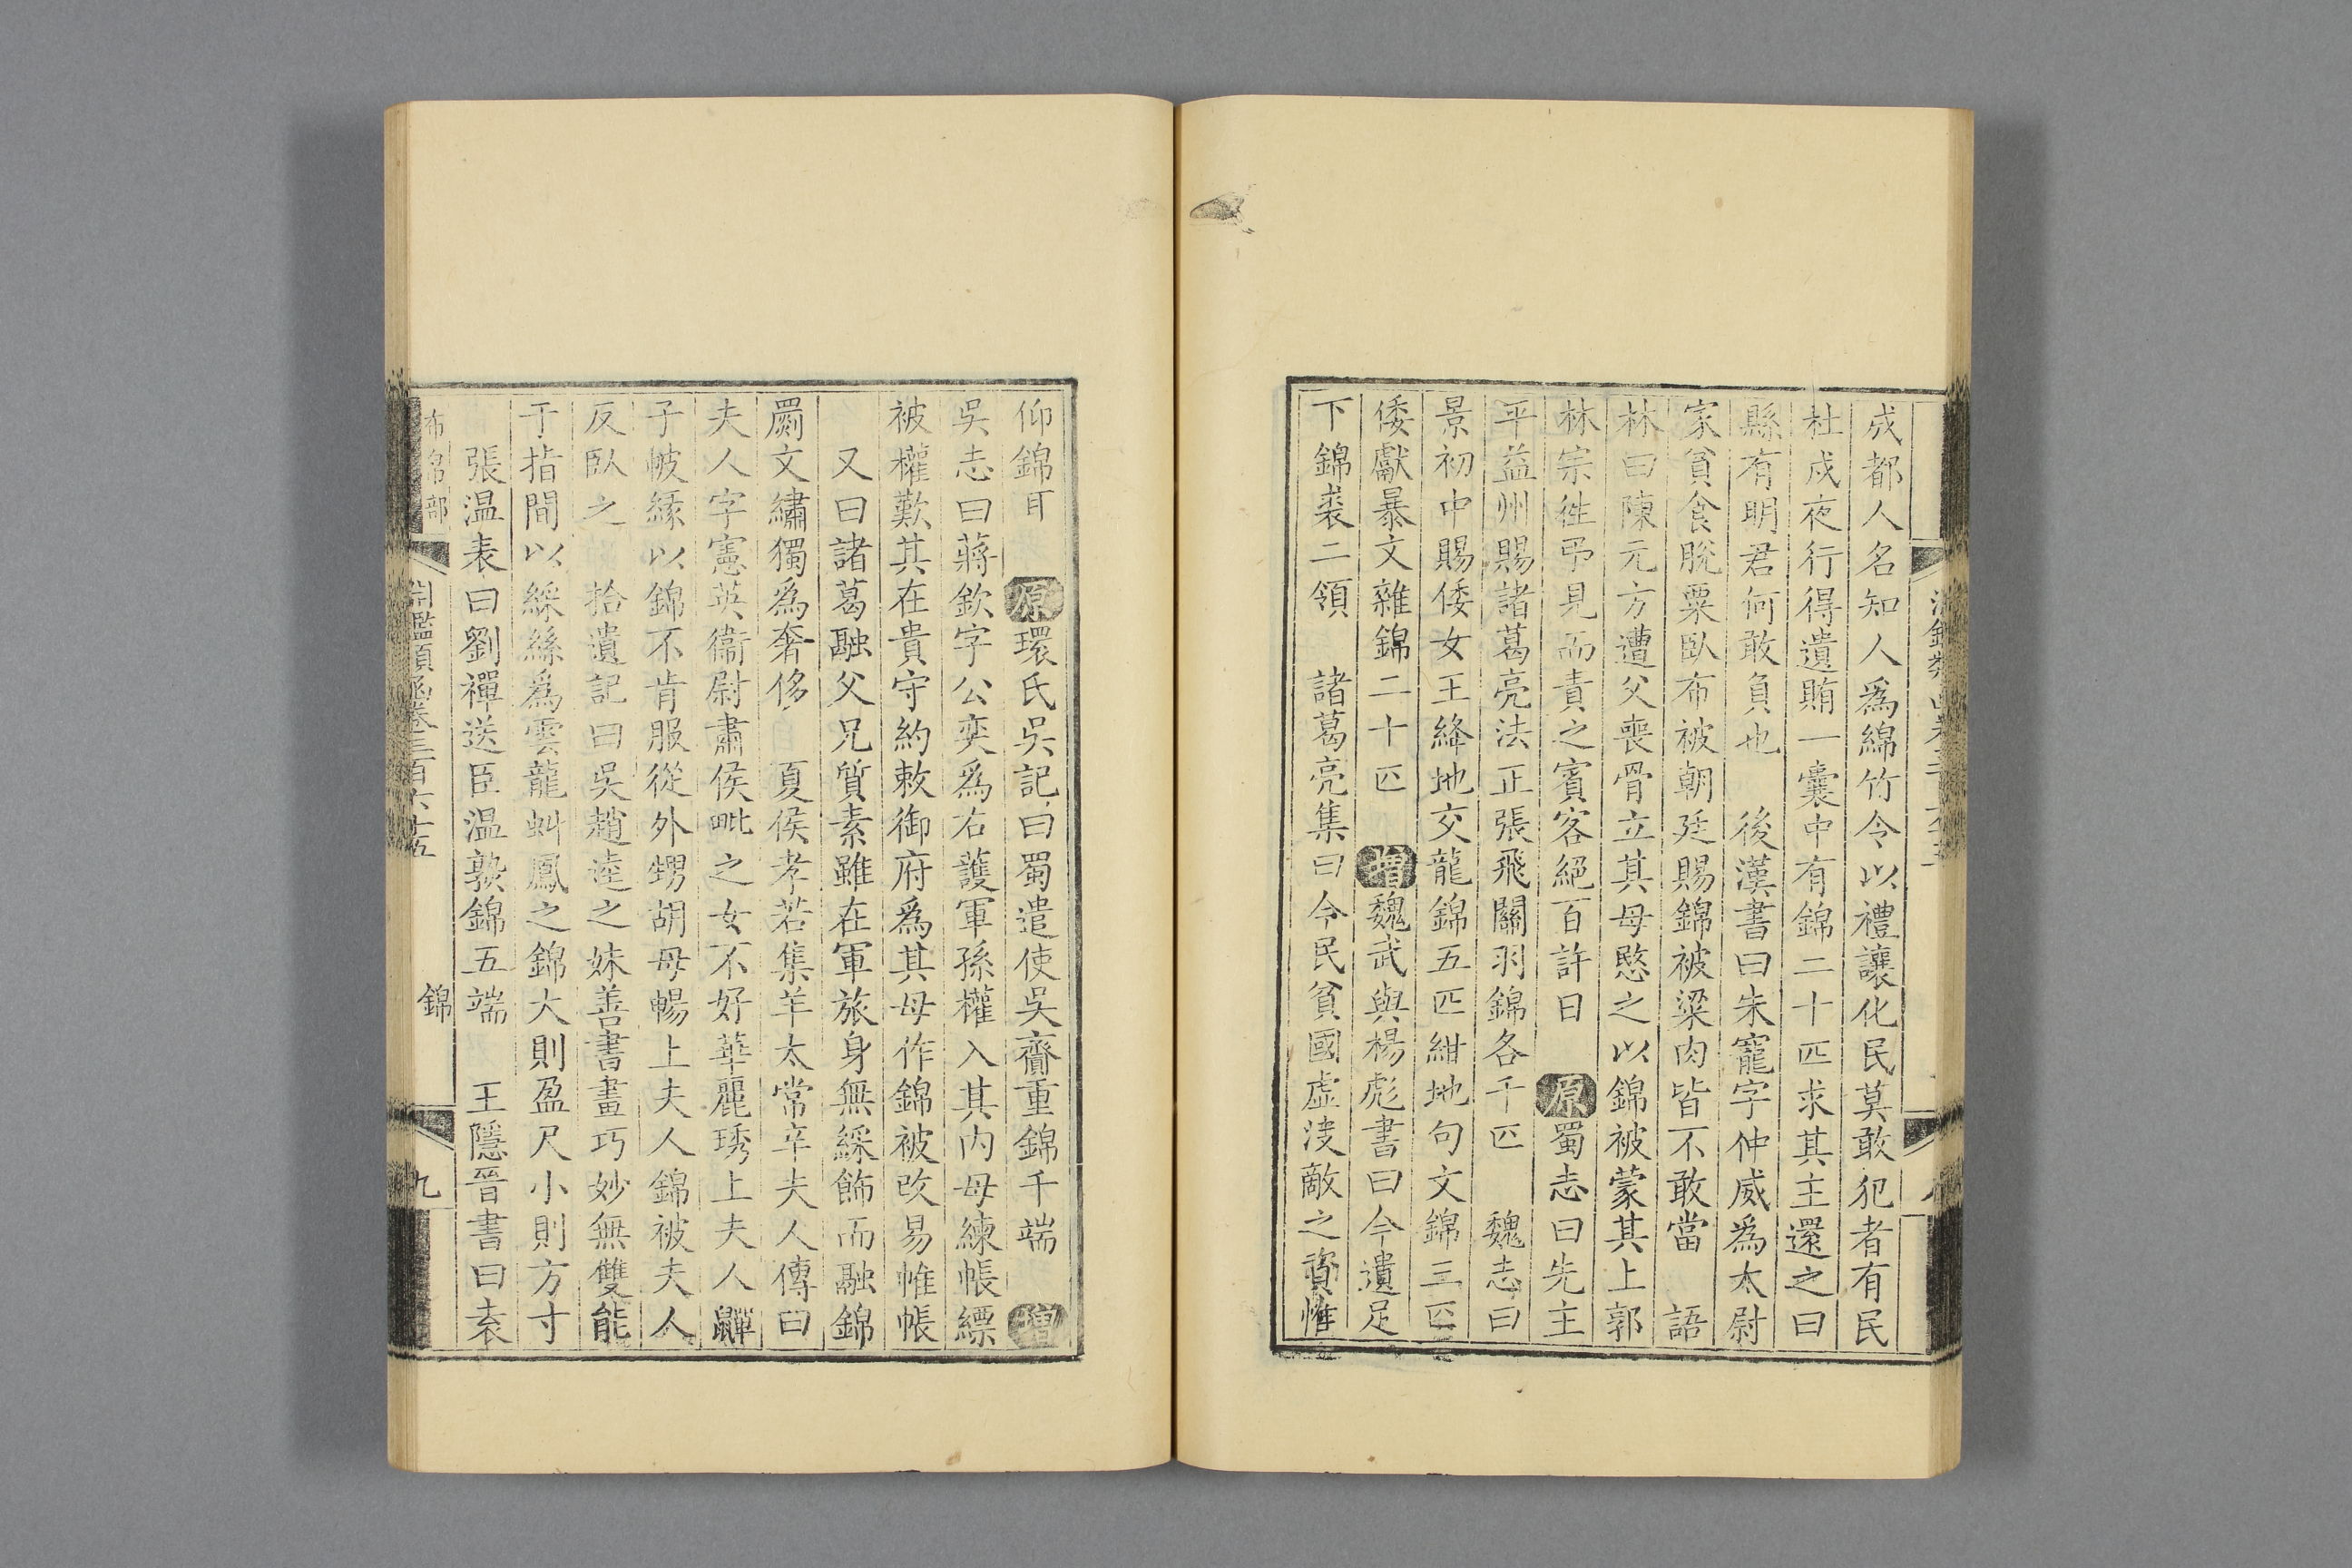 成都人名知人爲綿竹令以禮讓化民莫敢犯者有民
杜成夜行得遺賄一囊中有錦二十匹求其主還之曰
縣有明君何敢負也 後漢書曰朱寵字仲威爲太尉
家貧食脫粟臥布被朝廷賜錦被粱肉皆不敢當 語
林曰陳元方遭父喪骨立其母愍之以錦被蒙其上郭
林宗往弔見而責之賓客絕百許日 原蜀志曰先主
平益州賜諸葛亮法正張飛關羽錦各千匹 魏志曰
景初中賜倭女王絳地交龍錦五匹紺地句文錦三匹
倭獻暴文雜錦二十匹 增魏武與楊彪書曰今遺足
下錦裘二領 諸葛亮集曰今民貧國虛決敵之資惟
仰錦耳 原環氏吳記曰蜀遣使吳齎重錦千端 增
吳志曰蔣欽字公奕爲右護軍孫權入其內母練帳縹
被權歎其在貴守約敕御府爲其母作錦被改易帷帳
又曰諸葛融父兄質素雖在軍旅身無綵飾而融錦
罽文繡獨爲奢侈 夏侯孝若集羊太常辛夫人傳曰
夫人字憲英衞尉肅侯毗之女不好華麗琇上夫人
子帔緣以錦不肯服從外甥胡母暢上夫人錦被夫人
反臥之 拾遺記曰吳趙逵之妹善書畫巧妙無雙能
于指間以綵絲爲雲龍虯鳳之錦大則盈尺小則方寸
張温表曰劉禪送臣温熟錦五端 王隱晉書曰袁
布帛部 淵鑑類函卷三百六十五 錦 九